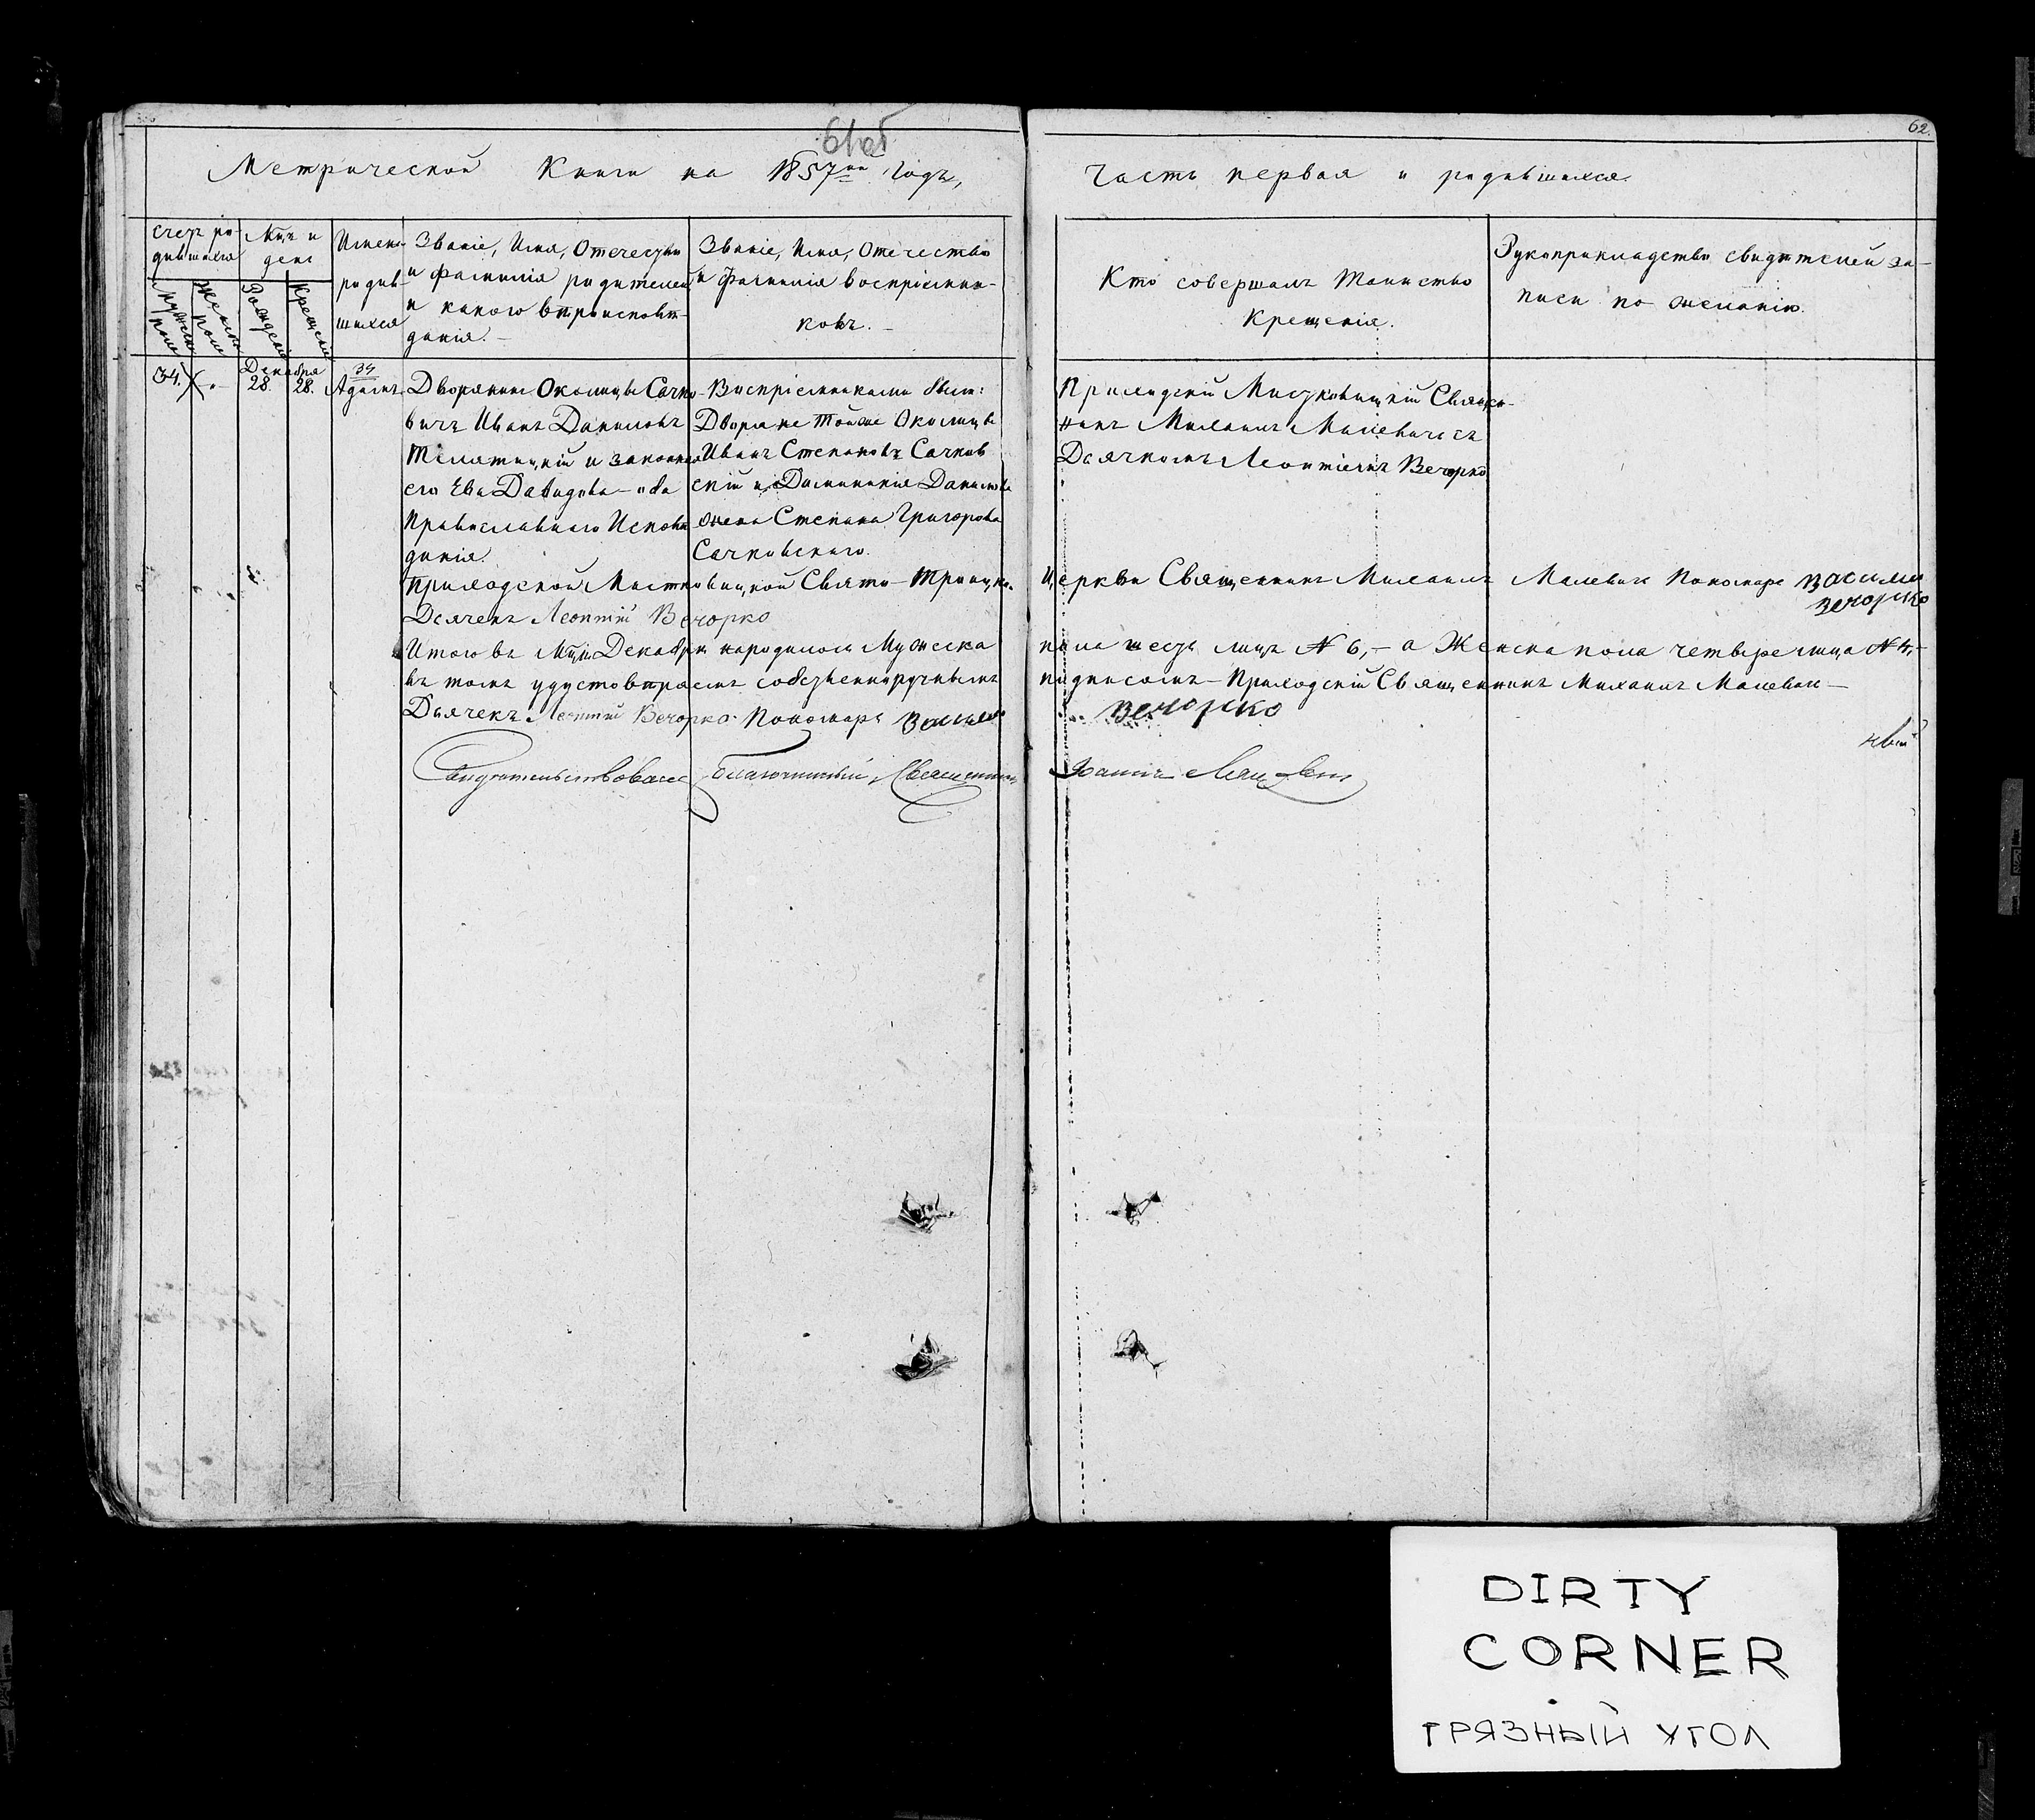 61об
62.
Метрической Книги на 1857ой Годъ,
Часть первая о родившихся.
Счетъ ро-
дившихся
Мужеска
пола
Женска
пола
Мцъ и
день
Рожденія
Крещенія
Имена
родив-
шихся
Званіе, Имя, Отечество
и фамилія родителей
и какого вѣроисповѣ-
данія.
Званіе, Имя, Отечество
и фамилія воспріемни-
ковъ.
Кто совершалъ Таинство
Крещенія.
Рукоприкладство свидѣтелей за-
писи по желанію.
34.
Декабря
28. 28.
34
Адамъ
Дворянинъ Околицы Сачко-
вичъ Иванъ Даниловъ
и законная
его Ева Давидова оба
Православнаго Исповѣ
данія.
Воспріемниками были:
Дворяне тойже Околицы
Иванъ Степановъ Сачков
скій и Доминикія Данилова
жена Степана Григорова
Сачковскаго.
Приходскій Священ-
никъ Михаилъ Малевичъ съ
Дьячкомъ Леонтіемъ Вечорко
Приходской Свято-Троицкой Церкви Священникъ Михаилъ Малевичъ Пономарь Василій
Вечорко
Дьячекъ Леонтій Вечорко
Итого въ Мцѣ Декабрѣ народилось Мужеска пола шесть лицъ № 6,- а Женска пола четыре лица № 4,-
въ томъ удустовѣряемъ собственноручнымъ подписомъ - Приходскій Священникъ Михаилъ Малевичъ -
Дьячекъ Леонтій Вечорко Пономарь Василій Вечорко
Свидѣтельствовалъ благочинный Священникъ Іоаннъ
DIRTY
CORNER
ГРЯЗНЫЙ УГОЛ